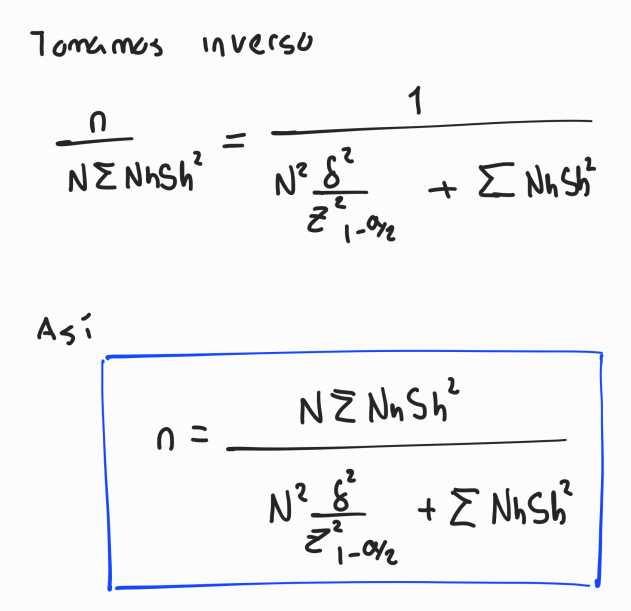 Tomamos inverso
n / (N Σ NhSh²) = 1 / (N² δ² / Z²₁₋α/₂ + Σ NhSh²)
Así
n = N Σ NhSh² / (N² δ² / Z²₁₋α/₂ + Σ NhSh²)